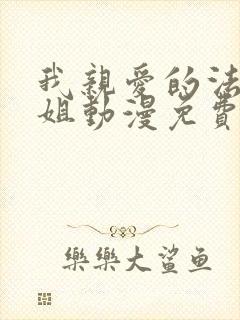 我親愛的法
姐動漫免費
樂樂大鯊魚